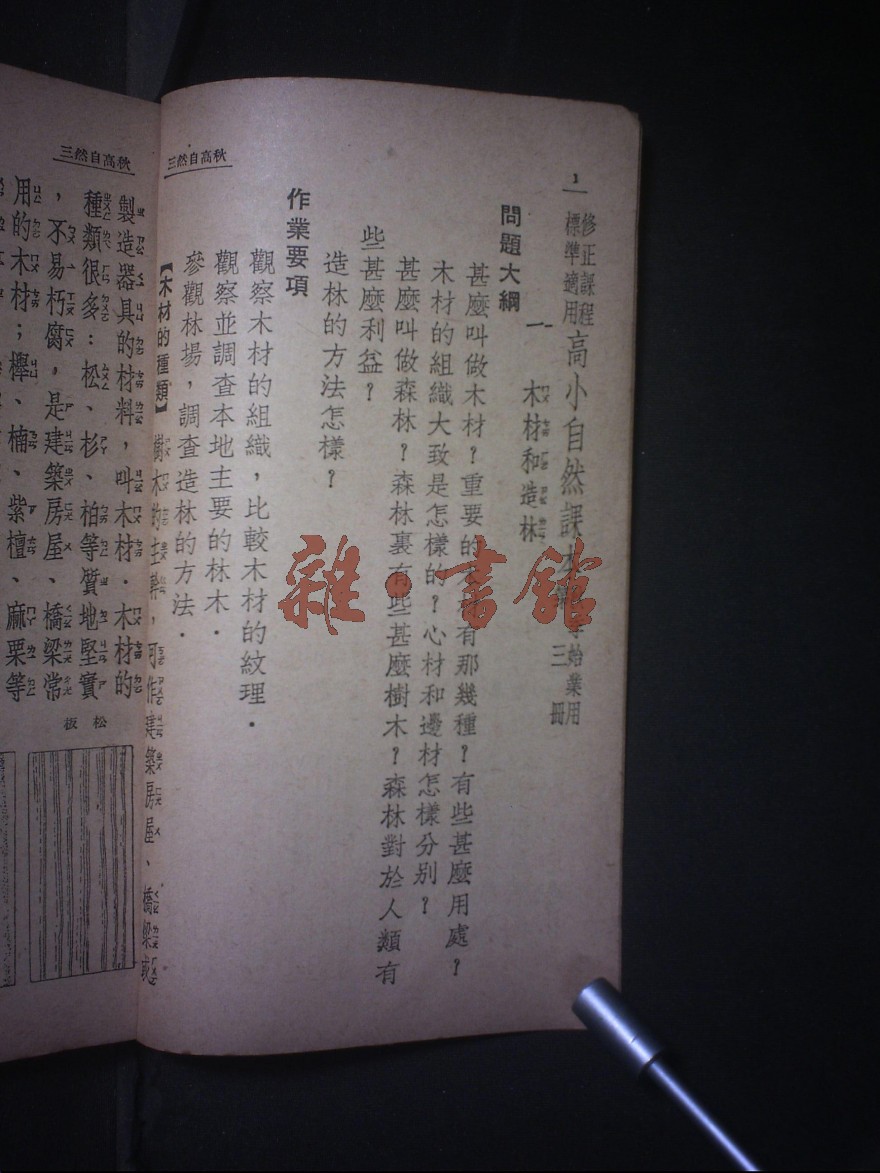 1
修正課程標準適用 高小自然課本 始業用 三冊
一 木材和造林
問題大綱
甚麼叫做木材？重要的 有那幾種？有些甚麼用處？
木材的組織大致是怎樣的？心材和邊材怎樣分別？
甚麼叫做森林？森林裏有些甚麼樹木？森林對於人類有
些甚麼利益？
造林的方法怎樣？
作業要項
觀察木材的組織，比較木材的紋理．
觀察並調查本地主要的林木．
參觀林場，調查造林的方法．
【木材的種類】 樹木的主幹，可作建築房屋、橋梁或
三然自高秋
三然自高秋
製造器具的材料，叫木材．木材的
種類很多：松、杉、柏等質地堅實
，不易朽腐，是建築房屋、橋梁常
用的木材；櫸、楠、紫檀、麻栗等
板松
雜·書館